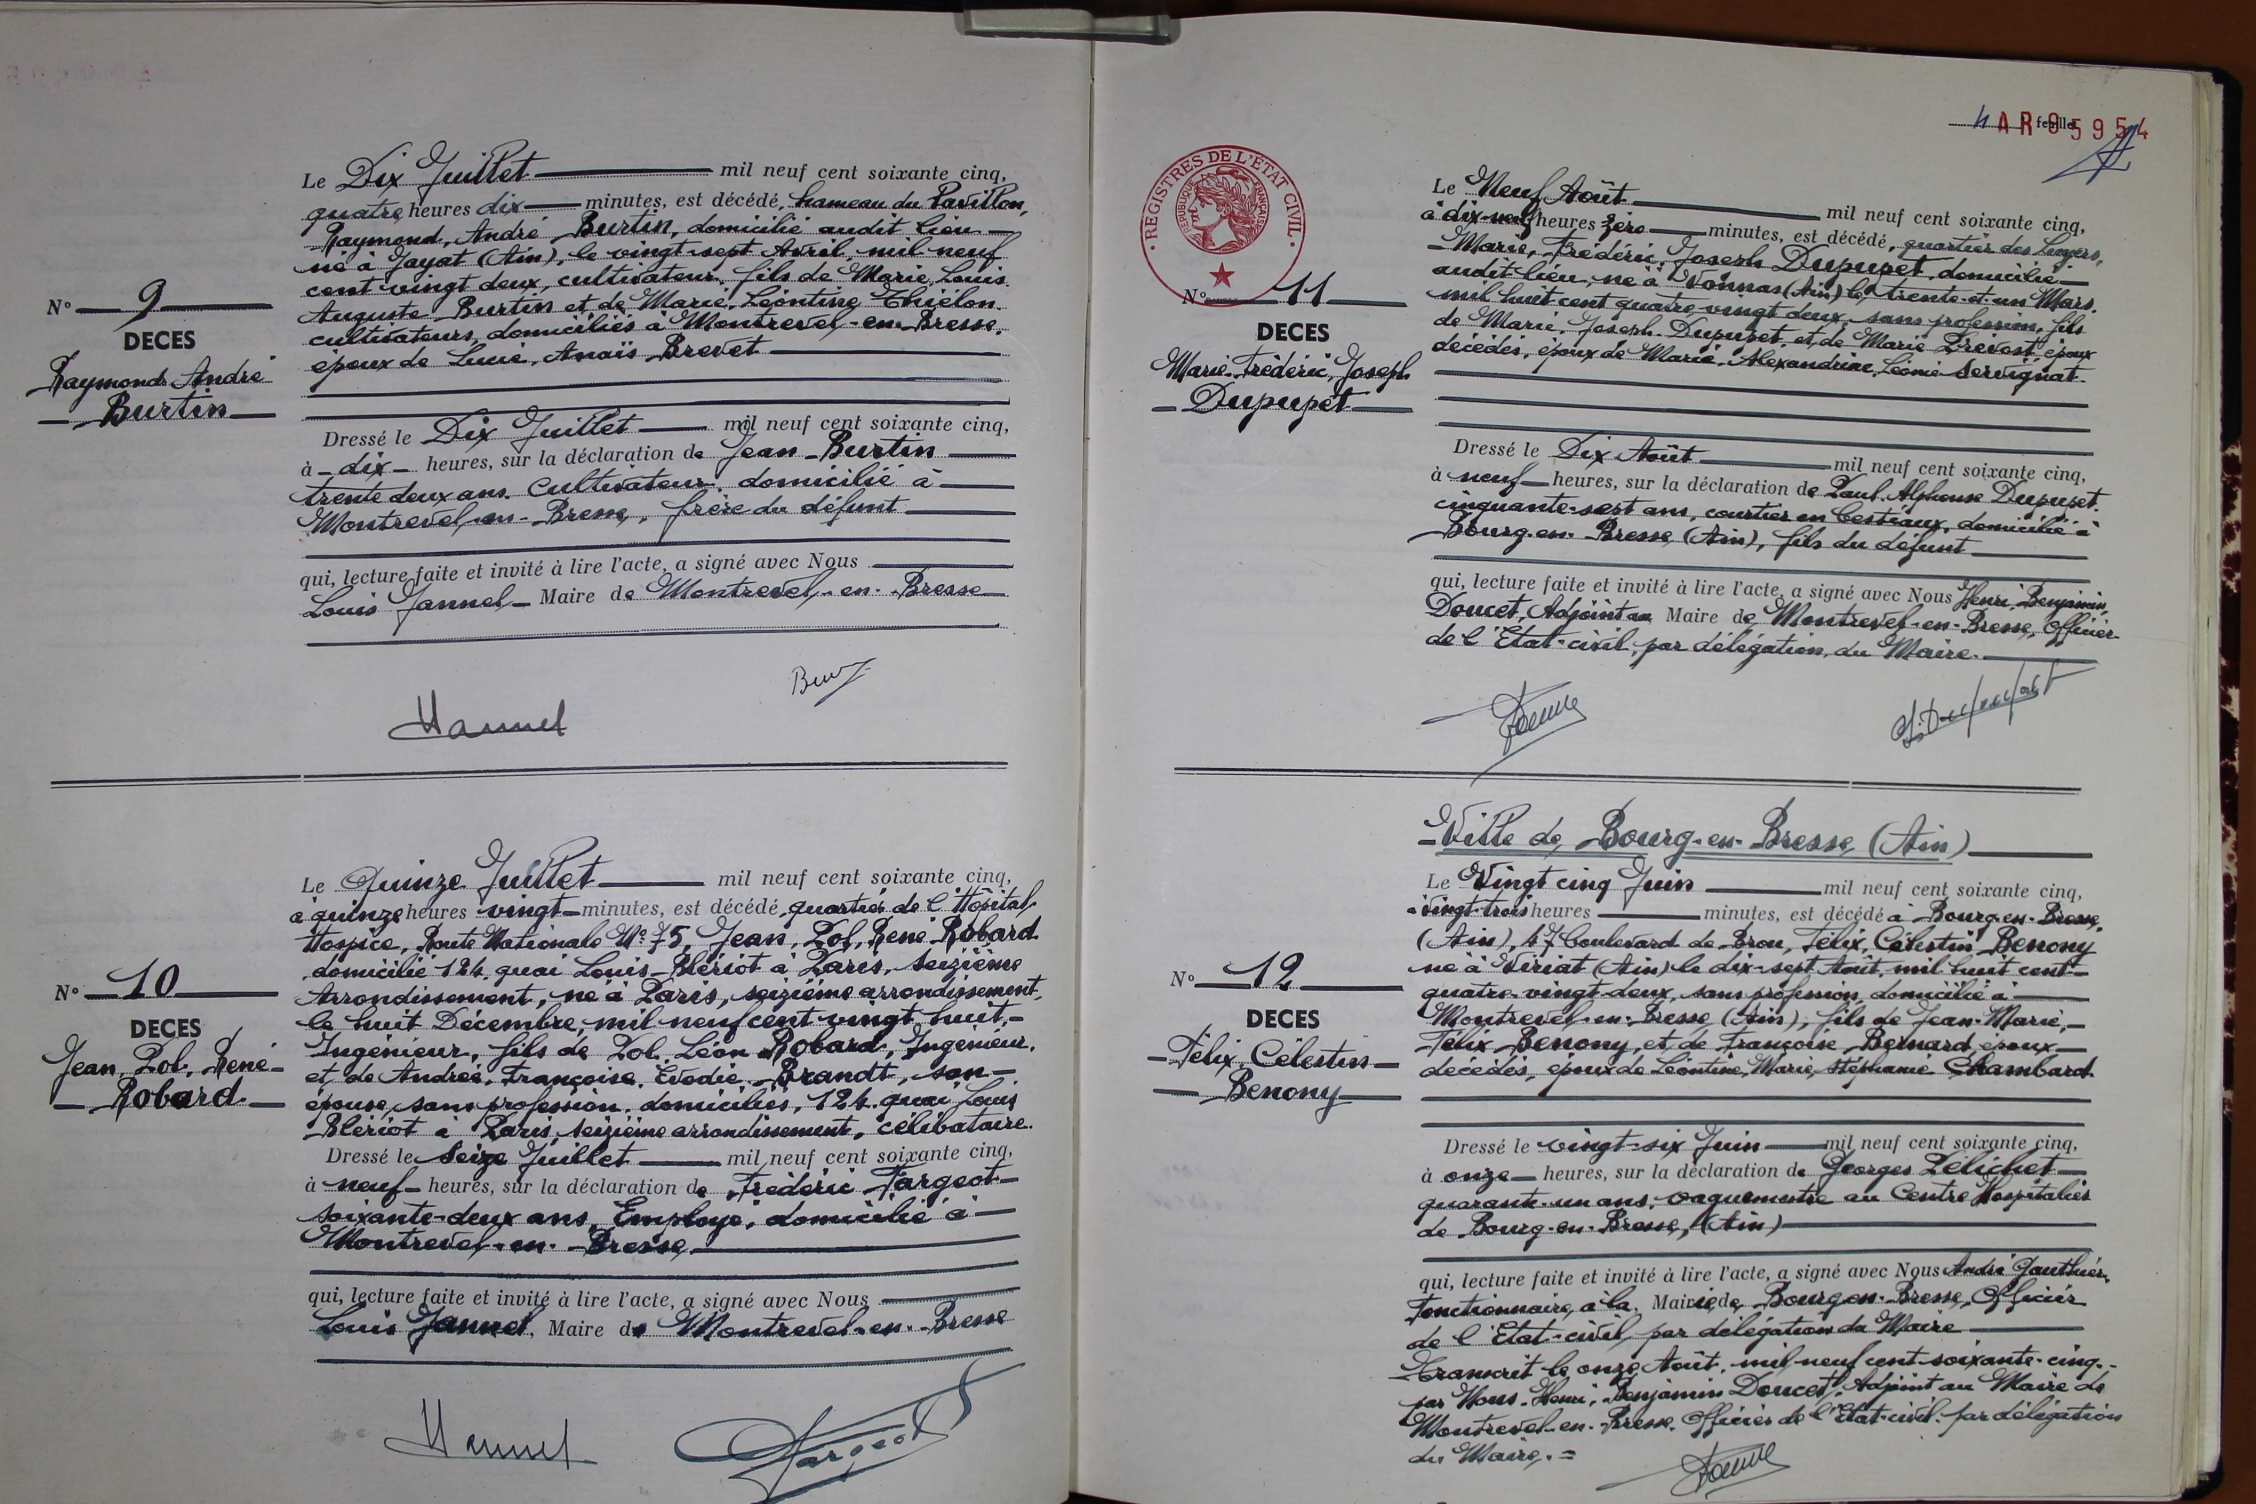 Le Dix Juillet mil neuf cent soixante cinq,
quatre heures dix minutes, est décédé, hameau du Pavillon,
Raymond, André Burtin, domicilié audit lieu
né à Jayat (Ain), le vingt-sept Avril, mil neuf
cent vingt deux, cultivateur, fils de Marie, Louis
Auguste Burtin et de Marie, Léontine Thiélon
cultivateurs, domiciliés à Montrevel-en-Bresse,
époux de Lucie, Anaïs Brevet
N° 9
DECES
Raymond, André
Burtin
Dressé le Dix Juillet mil neuf cent soixante cinq,
à dix heures, sur la déclaration de Jean Burtin
trente deux ans, cultivateur, domicilié à
Montrevel-en-Bresse, frère du défunt
qui, lecture faite et invité à lire l'acte, a signé avec Nous
Louis Jannel Maire de Montrevel-en-Bresse
Le Quinze Juillet mil neuf cent soixante cinq,
à quinze heures vingt minutes, est décédé, quartier de l'Hôpital
Hospice, Route Nationale N° 75, Jean, Pol, René Robard
domicilié 124 quai Louis-Blériot à Paris, seizième
Arrondissement, né à Paris, seizième arrondissement,
le huit Décembre, mil neuf cent vingt huit,
Ingénieur, fils de Pol, Léon Robard, Ingénieur,
et de Andrée, Françoise, Evodie Brandt, son
épouse, sans profession, domiciliés, 124 quai Louis
Blériot à Paris, seizième arrondissement, célibataire.
N° 10
DECES
Jean, Pol, René
Robard
Dressé le Seize Juillet mil neuf cent soixante cinq,
à neuf heures, sur la déclaration de Frédéric Fargeot
soixante-deux ans, Employé, domicilié à
Montrevel-en-Bresse
qui, lecture faite et invité à lire l'acte, a signé avec Nous
Louis Jannel, Maire de Montrevel-en-Bresse
Fargeot
4 feuillet
AR 95954
REGISTRES DE L'ETAT CIVIL
REPUBLIQUE FRANÇAISE
Le Neuf Août mil neuf cent soixante cinq,
à dix-neuf heures zéro minutes, est décédé, quartier des Luyers,
Marie, Frédéric, Joseph Dupupet, domicilié
audit lieu, né à Vonnas (Ain) le trente et un Mars
mil huit cent quatre-vingt deux, sans profession, fils
de Marie, Joseph Dupupet, et de Marie Prevost, époux
décédés, époux de Marie, Alexandrine, Léonie Servignat
N° 11
DECES
Marie, Frédéric, Joseph
Dupupet
Dressé le Dix Août mil neuf cent soixante cinq,
à neuf heures, sur la déclaration de Paul, Alphonse Dupupet
cinquante-sept ans, courtier en bestiaux, domicilié à
Bourg-en-Bresse (Ain), fils du défunt
qui, lecture faite et invité à lire l'acte, a signé avec Nous Henri, Benjamin,
Doucet, Adjoint au Maire de Montrevel-en-Bresse, Officier
de l'Etat-civil, par délégation du Maire.
Ville de Bourg-en-Bresse (Ain)
Le Vingt cinq Juin mil neuf cent soixante cinq,
à vingt-trois heures minutes, est décédé à Bourg-en-Bresse,
(Ain), 47 boulevard de Brou, Félix, Célestin Benony
né à Viriat (Ain) le dix-sept Août, mil huit cent
quatre-vingt-deux, sans profession, domicilié à
Montrevel-en-Bresse (Ain), fils de Jean-Marie,
Félix Benony, et de Françoise Bernard, époux
décédés, époux de Léontine, Marie, Stéphanie Chambard
N° 12
DECES
Félix, Célestin
Benony
Dressé le vingt-six Juin mil neuf cent soixante cinq,
à onze heures, sur la déclaration de Georges Pélichet
quarante-un ans, vaguemestre au Centre Hospitalier
de Bourg-en-Bresse, (Ain)
qui, lecture faite et invité à lire l'acte, a signé avec Nous André Gauthier,
Fonctionnaire, à la Mairie de Bourg-en-Bresse, Officier
de l'Etat-civil, par délégation du Maire
Transcrit le onze Août, mil neuf cent soixante-cinq,
par Nous Henri, Benjamin Doucet, Adjoint au Maire de
Montrevel-en-Bresse, Officier de l'Etat-civil, par délégation
du Maire.